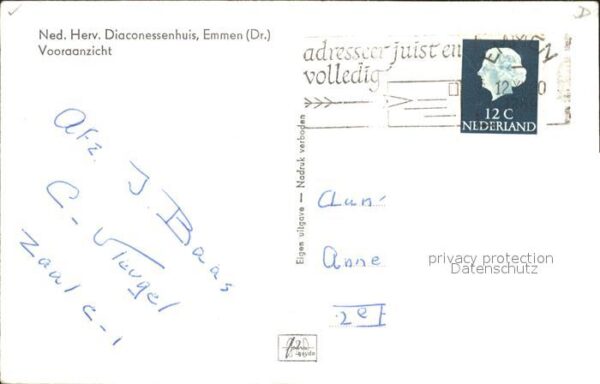 Ned. Herv. Diaconessenhuis, Emmen (Dr.)
Vooraanzicht
adresseer juist en
volledig
12 C
NEDERLAND
Eigen uitgave — Nadruk verboden
Afz. J. Baas
C-Vleugel
Zaal
Anne
2e I
privacy protection
Datenschutz